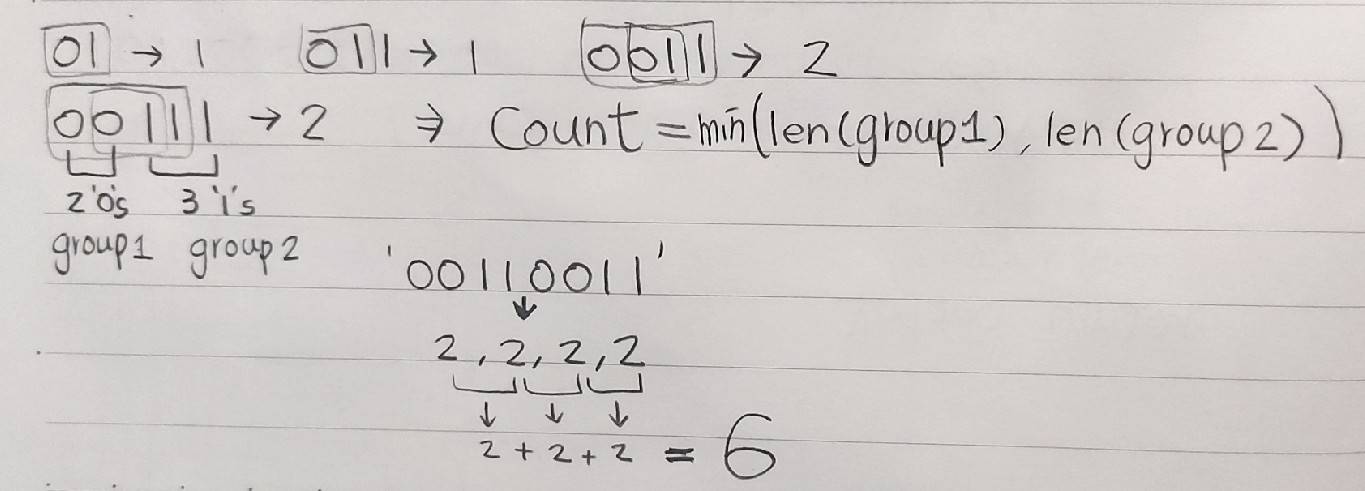 01 → 1 011 → 1 0011 → 2
00111 → 2 ⇒ Count = min(len(group1), len(group2))
2 '0's 3 '1's
group1 group2
'00110011'
↓
2, 2, 2, 2
↓ ↓ ↓
2 + 2 + 2 = 6